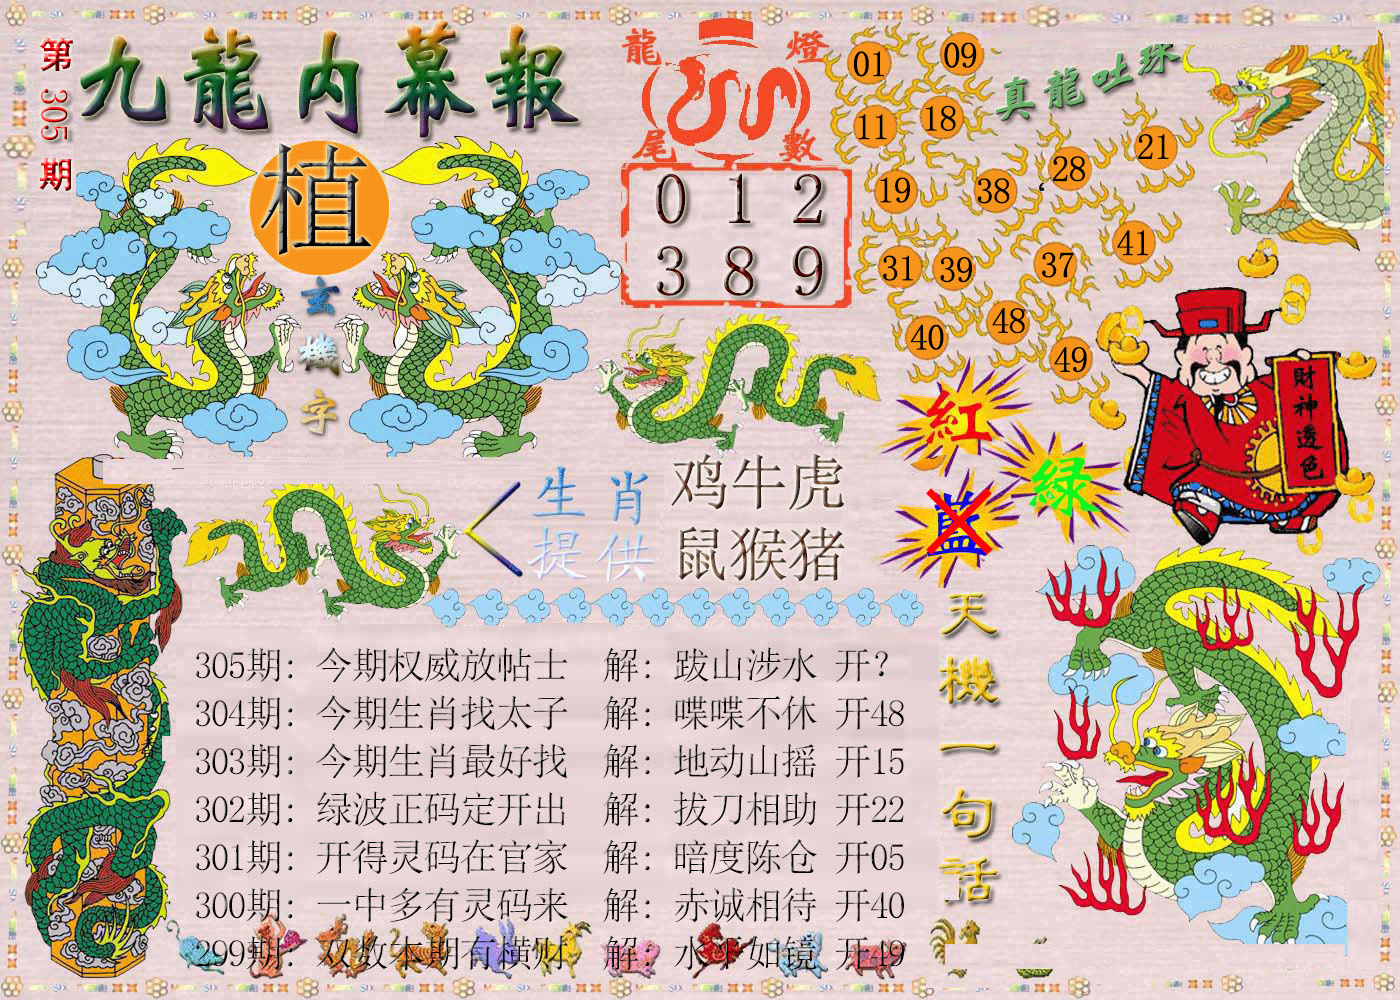 第305期
九龍內幕報
植
玄機字
龍燈
尾數
0 1 2
3 8 9
真龍吐珠
01 09
11 18
19 38 28 21
31 39 37 41
40 48 49
財神透色
紅
綠
藍
生肖
提供
鸡牛虎
鼠猴猪
天機一句話
305期: 今期权威放帖士 解: 跋山涉水 开?
304期: 今期生肖找太子 解: 喋喋不休 开48
303期: 今期生肖最好找 解: 地动山摇 开15
302期: 绿波正码定开出 解: 拔刀相助 开22
301期: 开得灵码在官家 解: 暗度陈仓 开05
300期: 一中多有灵码来 解: 赤诚相待 开40
299期: 双数本期有横财 解: 水平如镜 开49